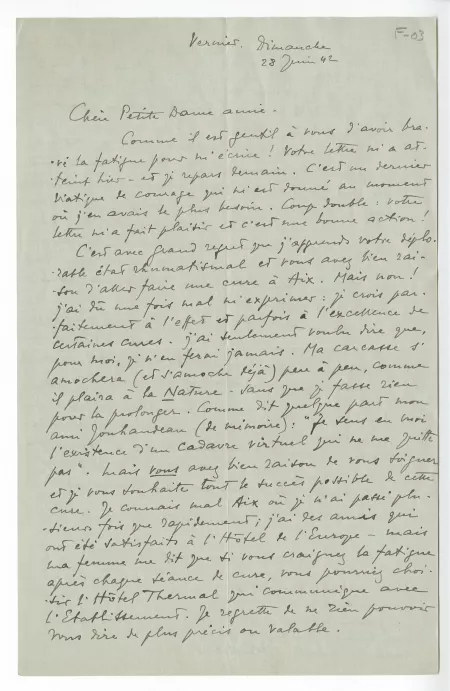 F-03
Vernier. Dimanche
28 Juin 42
Chère Petite Dame amie.
Comme il est gentil à vous d'avoir bra-
vé la fatigue pour m'écrire! Votre lettre m'a at-
teint hier - et je repars demain. C'est un dernier
viatique de courage qui m'est donné au moment
où j'en avais le plus besoin. Coup double : votre
lettre m'a fait plaisir et c'est une bonne action!
C'est avec grand regret que j'apprends votre déplo-
rable état rhumatismal et vous avez bien rai-
son d'aller faire une cure à Aix. Mais non!
j'ai dû une fois mal m'exprimer : je crois par-
faitement à l'effet et parfois à l'excellence de
certaines cures. J'ai seulement voulu dire que,
pour moi, je n'en ferai jamais. Ma carcasse s'
amochera (et s'amoche déjà) peu à peu, comme
il plaira à la Nature - sans que je fasse rien
pour la prolonger. Comme dit quelque part mon
ami Jouhandeau (de mémoire) : "Je sens en moi
l'existence d'un cadavre virtuel qui ne me quitte
pas". Mais vous avez bien raison de vous soigner
et je vous souhaite tout le succès possible de cette
cure. Je connais mal Aix où je n'ai passé plu-
sieurs fois que rapidement; j'ai des amis qui
ont été satisfaits à l'Hôtel de l'Europe - mais
ma femme me dit que si vous craignez la fatigue
après chaque séance de cure, vous pourriez choi-
sir l'Hôtel Thermal qui communique avec
l'Etablissement. Je regrette de ne rien pouvoir
vous dire de plus précis ou valable.